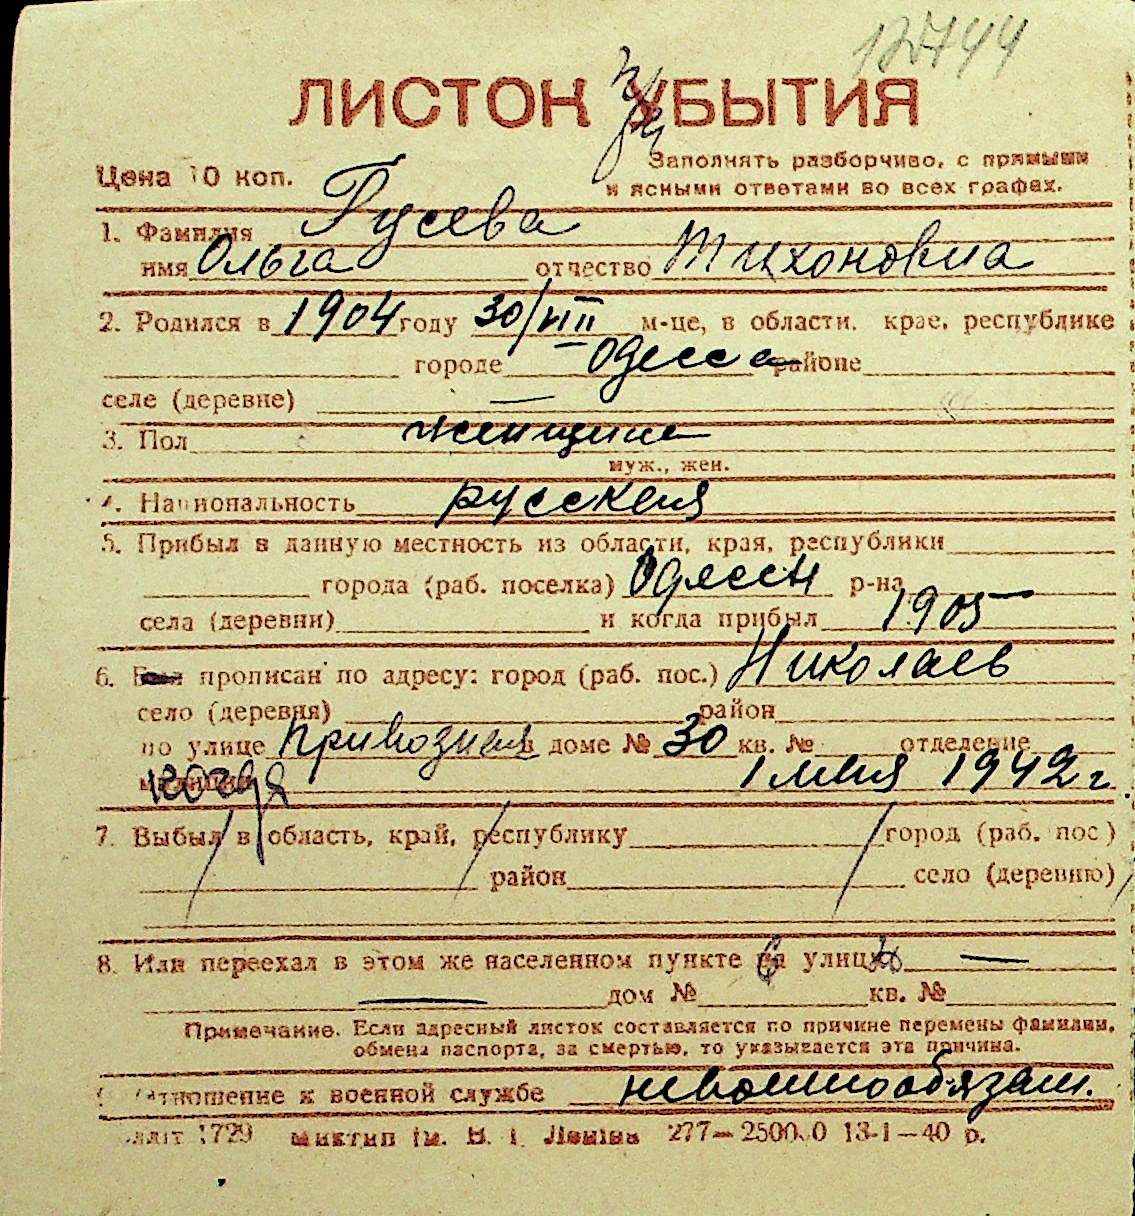 ЛИСТОК УБЫТИЯ
Цена 10 коп.
Заполнять разборчиво, с прямыми
и ясными ответами во всех графах.
1. Фамилия Гусева
имя Ольга отчество Тихоновна
2. Родился в 1904 году 30/VIII м-це, в области, крае, республике
городе Одесса районе
селе (деревне) —
3. Пол женщина
муж., жен.
4. Национальность русская
5. Прибыл в данную местность из области, края, республики
города (раб. поселка) Одессы р-на
села (деревни) и когда прибыл 1905
6. прописан по адресу: город (раб. пос.) Николаев
село (деревня) район
по улице Привозная в доме № 30 кв. № отделение
милиции когда 1 мая 1942 г.
7. Выбыл в область, край, республику город (раб. пос.)
район село (деревню)
8. Или переехал в этом же населенном пункте на улицу —
— дом № кв. №
Примечание. Если адресный листок составляется по причине перемены фамилии,
обмена паспорта, за смертью, то указывается эта причина.
Отношение к военной службе невоеннообязан.
1729 им. В. І. Леніна 277— 13-1—40 р.